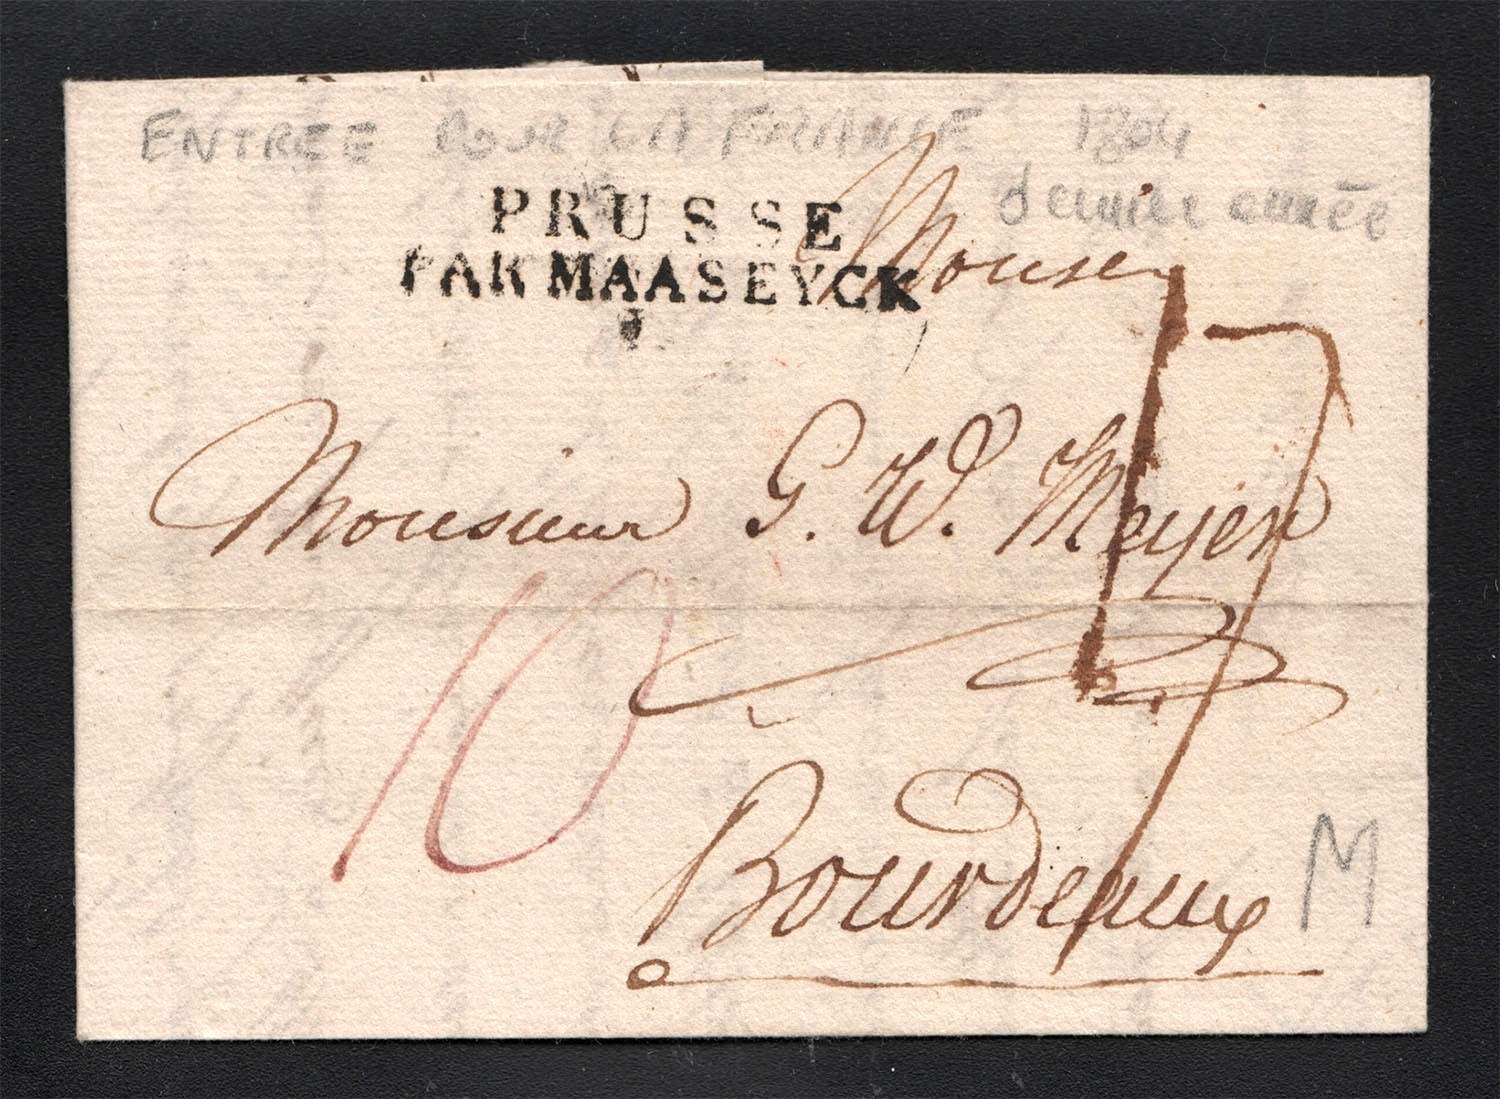 ENTREE POUR LA FRANCE 1804
dernière année
PRUSSE
PAR MAASEYCK
Monsr
17
Monsieur G. W. Meyer
10
Bourdeaux
M